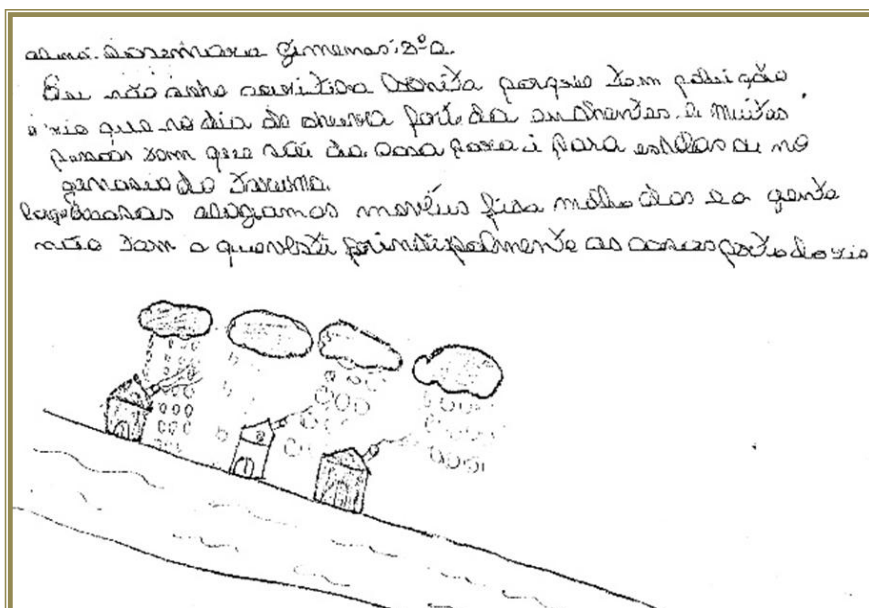 Rosemara Gimenes: 3ª a.
Eu não anho curitiba bonita porque tem poluição
o rio que no dia de chuva forte da enchentes. e Muitas
pessoas tem que sai da casa para i para escolas ou no
genasio do
casas alagamos movéus fica molhados e a gente
não tem o que vesti prinsipalmente as casas perto do rio